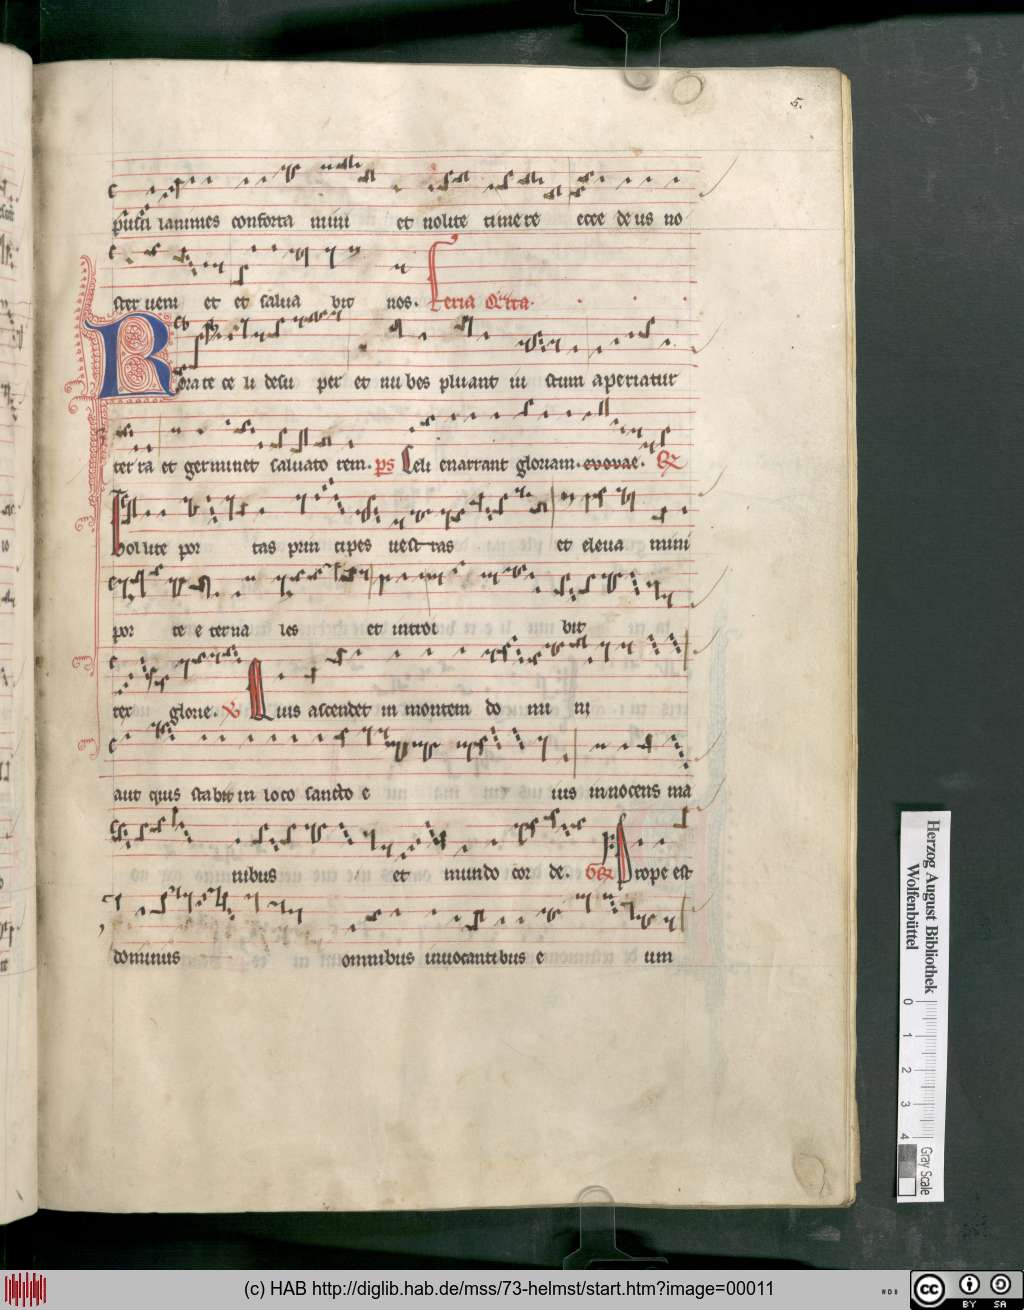 5.
pusil lanimes conforta mini et nolite timere ecce deus no
ster veni et et salua bit nos. feria
Rorate ce li desu per et nubes pluant iu stum aperiatur
ter ra et germinet saluato rem. ps Celi enarrant gloriam. evovae.
Tol lite por tas prin cipes uest ras et eleua mini
por te e terna les et introi bit
rex glorie. Quis ascendet in montem do mi ni
aut quis stabit in loco sancto e ius innocens ma
nibus et mundo cor de. Prope est
dominus omnibus inuocantibus e um
Herzog August Bibliothek
Wolfenbüttel
0 1 2 3 4
Gray Scale
(c) HAB http://diglib.hab.de/mss/73-helmst/start.htm?image=00011
cc BY SA